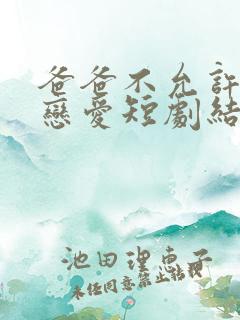 爸爸不允許
戀愛短劇結
池田理惠子
未經同意禁止轉載